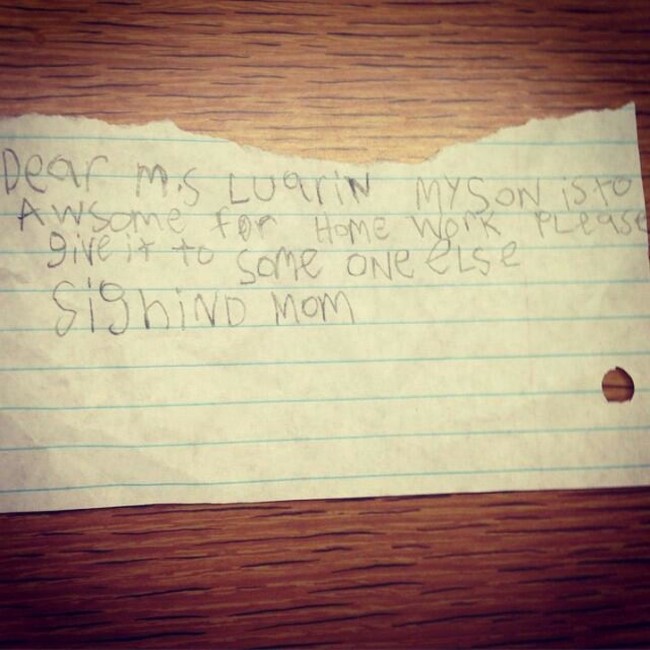 Dear M.S LUarIN MY SON is to
AWSome for Home Work PLease
give it to some ONe eLSe
SighiND Mom